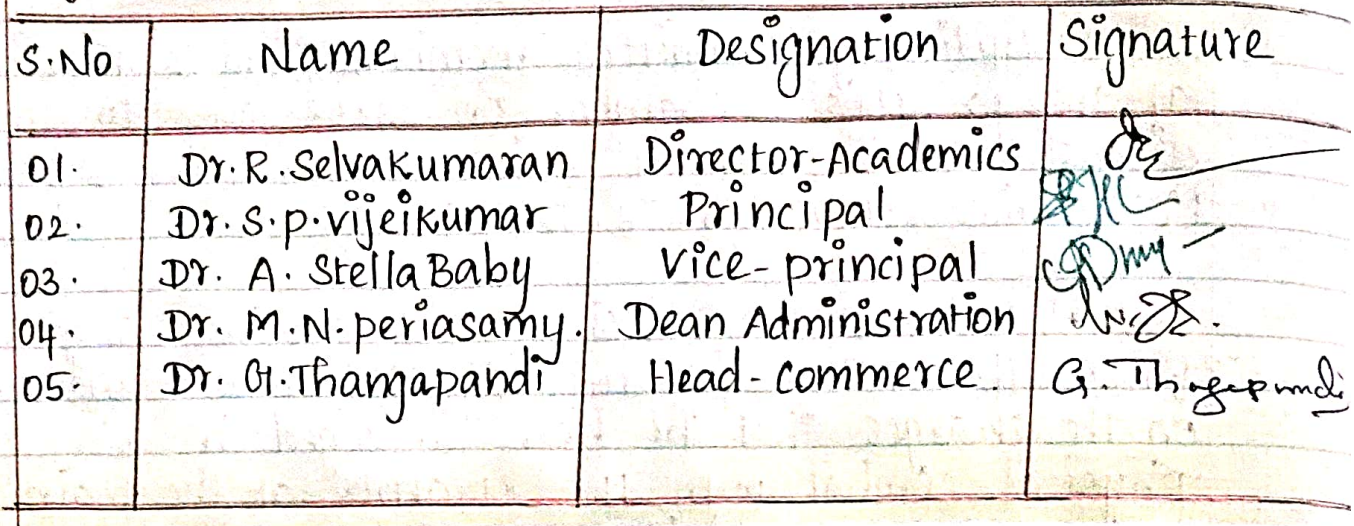 S.No Name Designation Signature
01. Dr. R. Selvakumaran Director-Academics
02. Dr. S.P. vijeikumar Principal
03. Dr. A. Stella Baby Vice-principal
04. Dr. M.N. periasamy. Dean Administration
05. Dr. G. Thangapandi Head-commerce G. Thangapandi